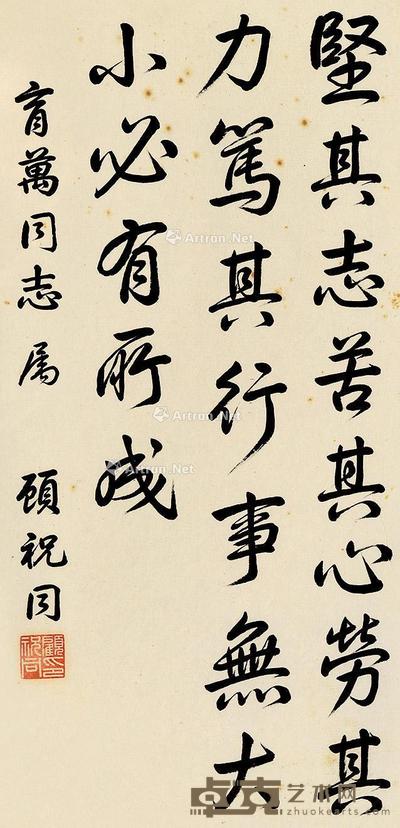 堅其志苦其心勞其
力篤其行事無大
小必有所成
育萬同志属
顧祝同
顧祝同印
Artron.Net
Artron.Net
Artron.Net
卓克艺术网
zhuokearts.com